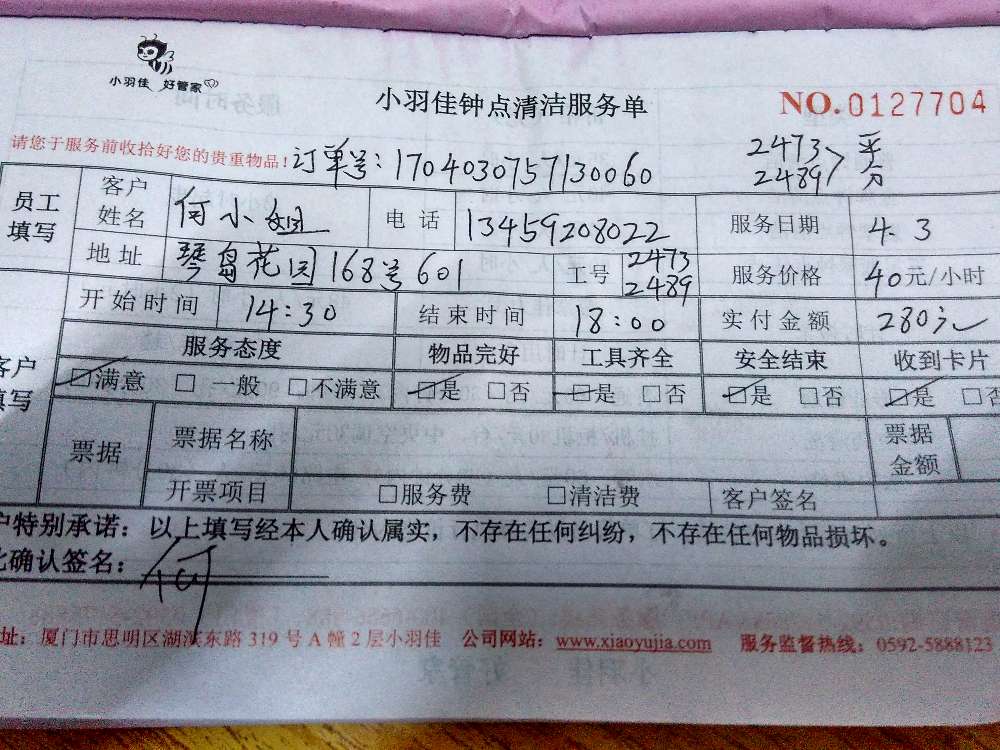 小羽佳 好管家
小羽佳钟点清洁服务单
NO.0127704
请您于服务前收拾好您的贵重物品!
订单号:170403075713 0060
2473 平
2489 分
员工填写
客户姓名 何小姐 电话 13459208022 服务日期 4.3
地址 琴岛花园168号601 工号 2473 2489 服务价格 40元/小时
开始时间 14:30 结束时间 18:00 实付金额 280元
客户填写
服务态度 物品完好 工具齐全 安全结束 收到卡片
☑满意 □一般 □不满意 ☑是 □否 ☑是 □否 ☑是 □否 ☑是 □否
票据 票据名称 票据金额
开票项目 □服务费 □清洁费 客户签名
户特别承诺:以上填写经本人确认属实,不存在任何纠纷,不存在任何物品损坏。
此确认签名: 何
址:厦门市思明区湖滨东路319号A幢2层小羽佳 公司网站:www.xiaoyujia.com 服务监督热线:0592-5888123